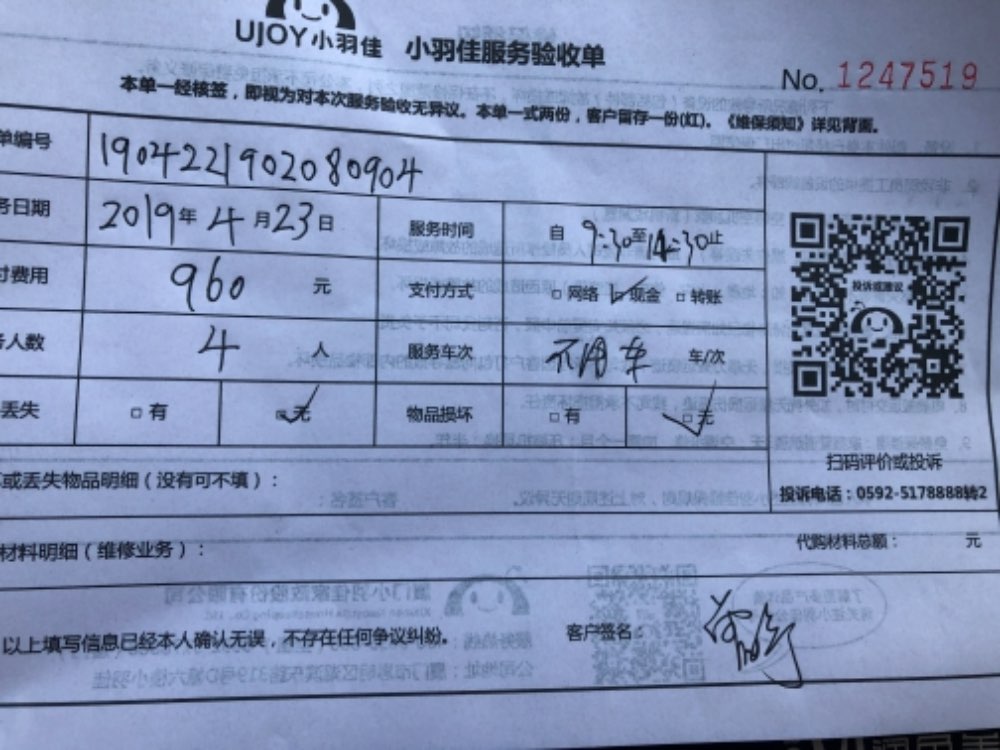 UJOY小羽佳 小羽佳服务验收单
No. 1247519
本单一经核签，即视为对本次服务验收无异议。本单一式两份，客户留存一份(红)。《维保须知》详见背面。
单编号 1904221902080904
务日期 2019年4月23日 服务时间 自9:30至14:30止
付费用 960 元 支付方式 □网络 □现金 □转账
务人数 4 人 服务车次 不用车 车/次
丢失 □有 □无 物品损坏 □有 □无
投诉或建议
扫码评价或投诉
投诉电话：0592-5178888转2
坏或丢失物品明细（没有可不填）：
材料明细（维修业务）： 代购材料总额： 元
以上填写信息已经本人确认无误，不存在任何争议纠纷。 客户签名：